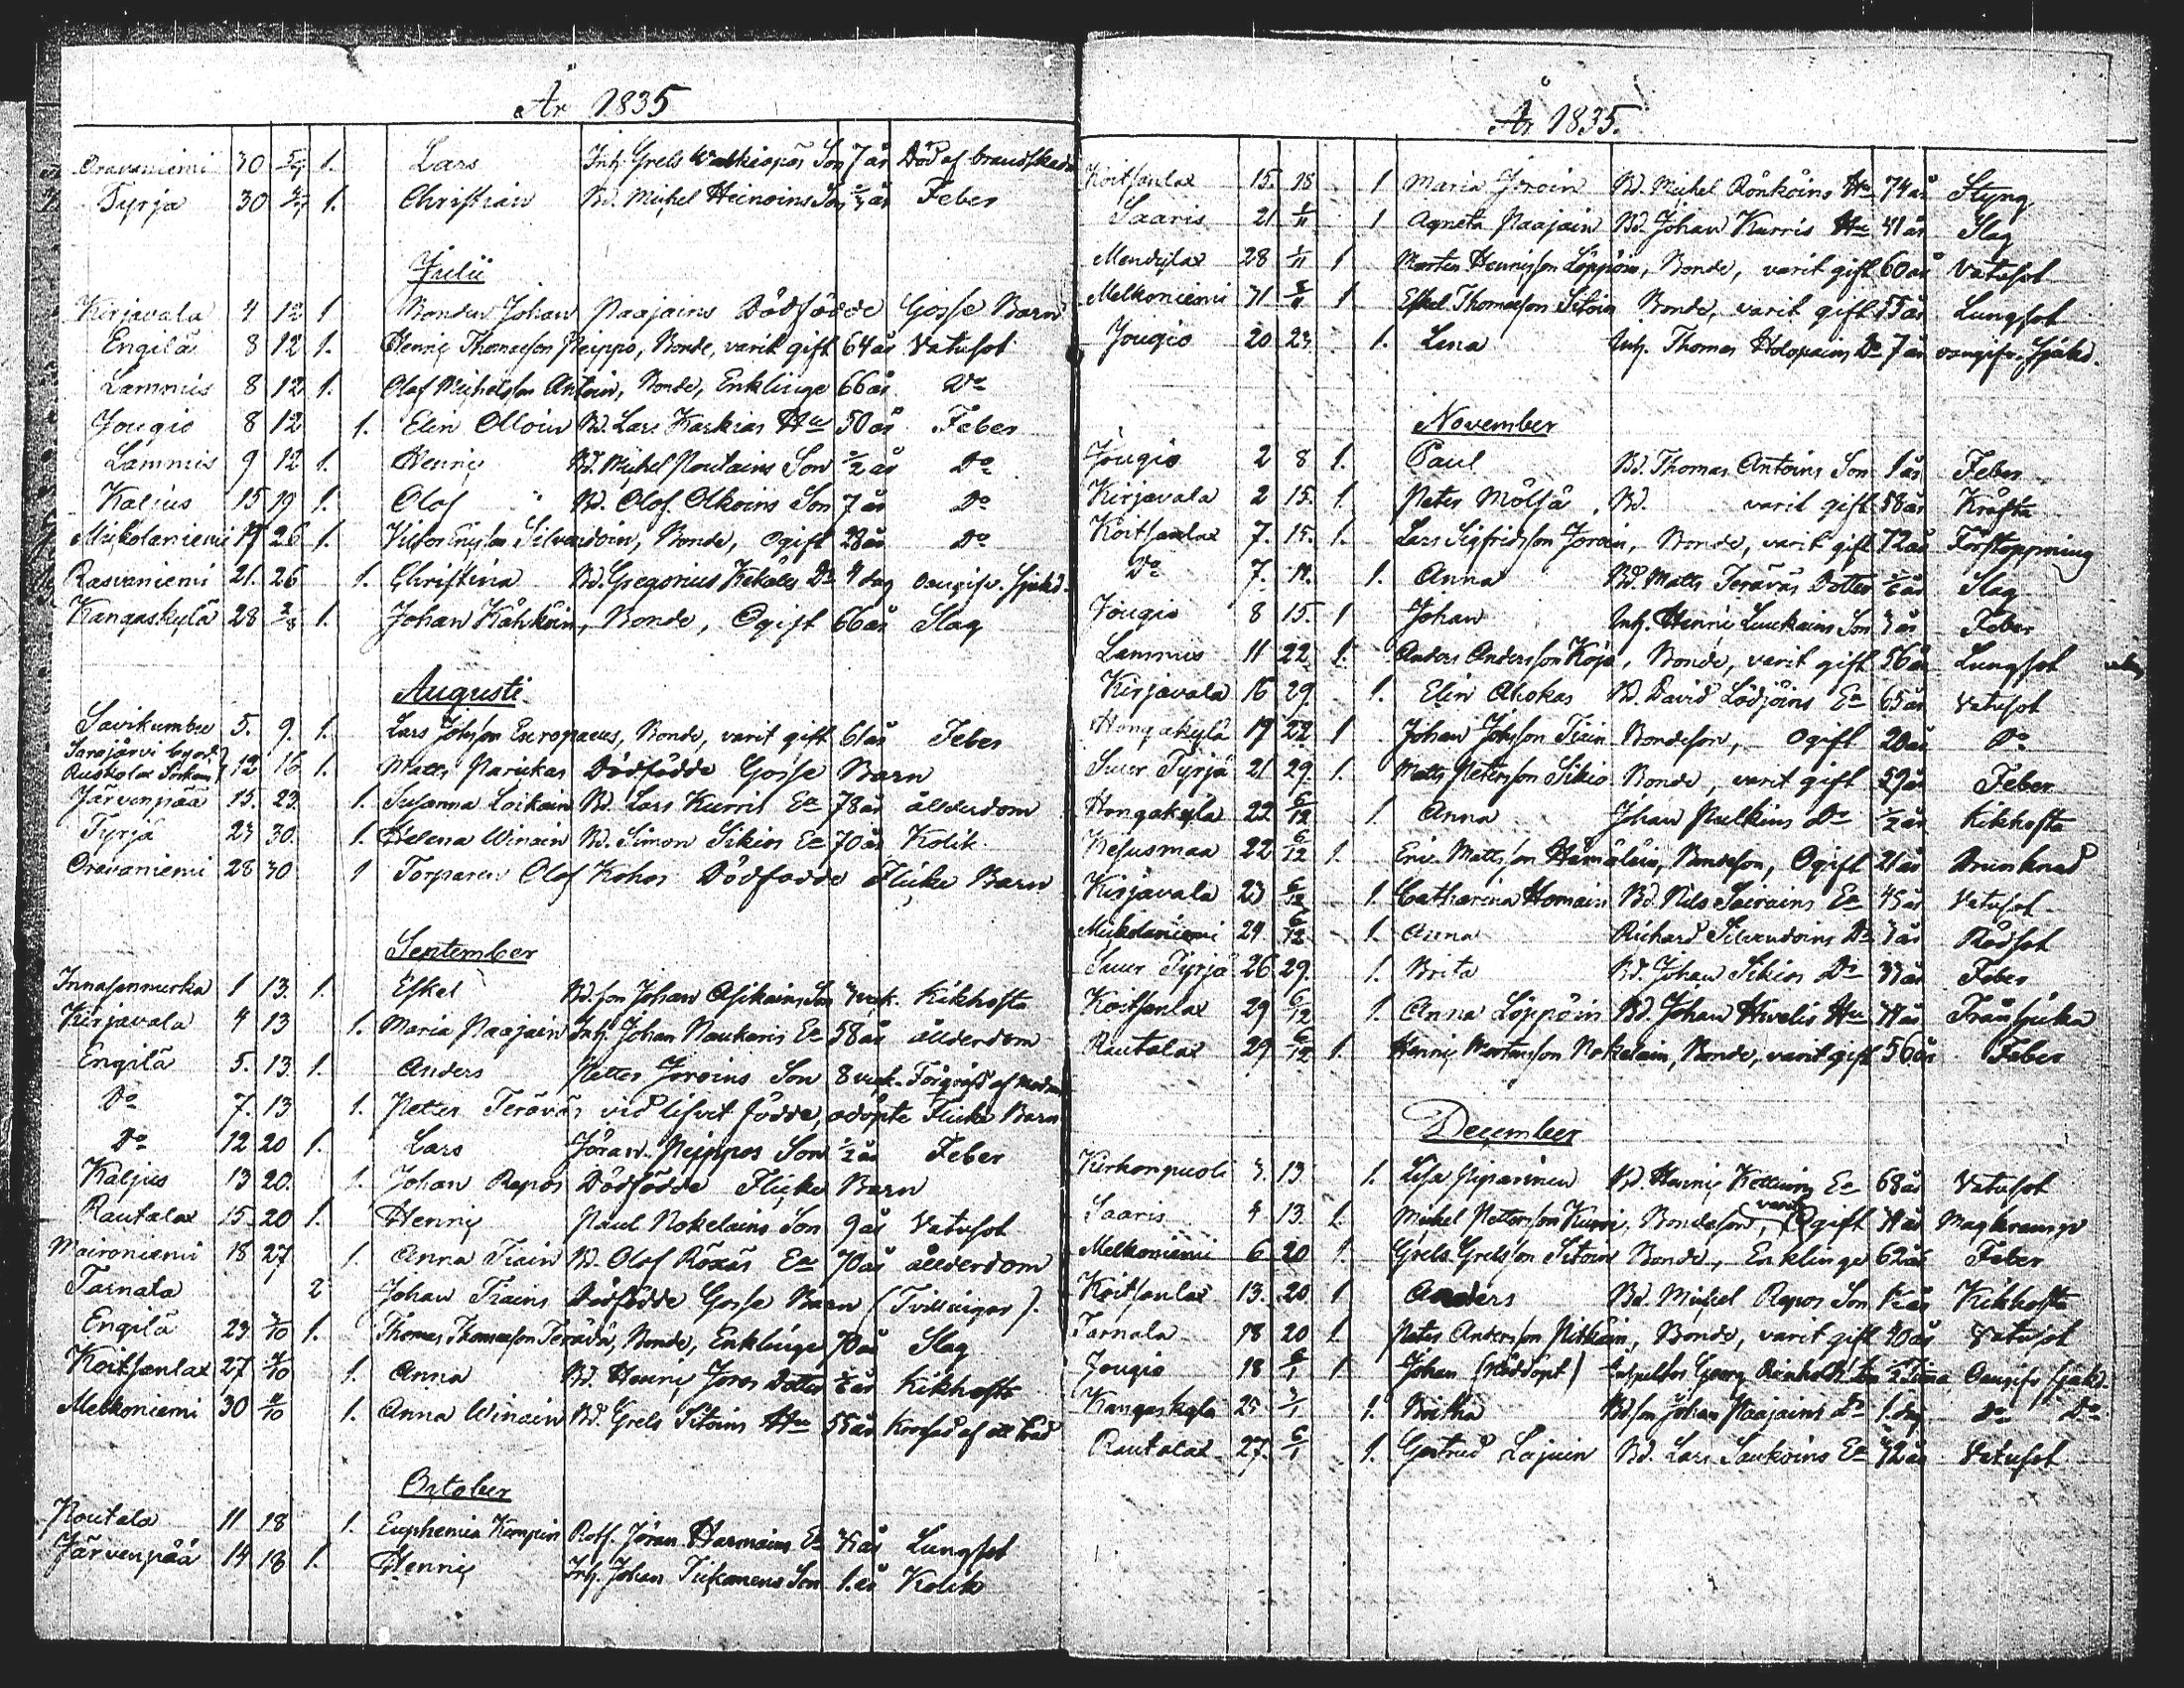 År 1835
Oravaniemi 30 5/7 1. Lars Inh. Grels Son 7 år Död af
Tyrjä 30 1. Christian Bd. Michel Heinoins Son år Feber
Julii
Kirjavala 4 12 1 Bonden Johan Paajains Dödfödde Gosse Barn
Engilä 8 12 1. Henric Thomasson Peippo, Bonde, varit gift 64 år Vatusot
Lammis 8 12 1. Olof Michelsson Antoin, Bonde, Enklinge 66 år Do
Jougio 8 12 1. Elin Olloin Bd. Lars Karkias Hu 50 år Feber
Lammis 9 12 1. Henric Bd. Michel Poutains Son 1/2 år Do
Kalius 15 19 1. Olof Bd. Olof Olkoins Son 7 år Do
Mickolaniemi 17 26 1. Silvendoin, Bonde, Ogift 28 år Do
Rasvaniemi 21. 26 1. Christina Bd. Gregorius Dr 4 dag oangifv. sjukd.
Kangaskylä 28 2/8 1. Johan Kähköin, Bonde, Ogift 66 år Slag
Augusti
Savikumbu 5. 9. 1. Lars Johsson Europaeus, Bonde, varit gift 61 år Feber
Sarajärvi by od.
Ruskolax Sokn 12 16 1. Matts Parickas Dödfödde Gosse Barn
Järvenpää 15. 23. 1. Susanna Loikain Bd. Lars Kurris Ea 78 år ållderdom
Tyrjä 23 30. 1. Helena Winain Bd. Simon Sikios Ea 70 år Kolik
Oravaniemi 28 30 1 Torparen Olof Kohos Dödfödde Flicke Barn
September
1 13. 1. Eskel Bd.son Johan Asikains Son 3 veck. Kikhosta
Kirjavala 4 13 1. Maria Paajain Inh. Johan Naukaris Ea 58 år ållderdom
Engilä 5. 13. 1. Anders Petter Joroins Son 8 veck.
Do 7. 13 1. Petter Teräväs vid lifvet födde, odöpte Flicke Barn
Do 12 20 1. Lars Jöran Peippos Son 1/2 år Feber
Kaljus 13 20. 1. Johan Repos Dödfödde Flicke Barn
Rautalax 15. 20 1. Henric Paul Nokelains Son 9 år Vatusot
Maironiemi 18 27 1. Anna Tiain Bd. Olof Röxäs Ea 70 år ållderdom
Tarnala 2 Johan Tiains Dödfödde Gosse Barn (Tvillingar).
Engilä 23. 1. Thomas Thomasson Terävä, Bonde, Enklinge 70 år Slag
Koitsanlax 27 4/10 1. Anna Bd. Henric Joros Dotter år Kikhosta
Melkoniemi 30 4/10 1. Anna Winain Bd. Grels Sitoins Hu 55 år Krossad af ett träd
October
Poutala 11 18 1. Euphemia Kempin Rotf. Jöran Harmains Ea år Lungsot
Järvenpää 14 18 1. Henric Inh. Johan Son 1. år Kolik
År 1835.
Koitsanlax 15. 18 1 Maria Joroin Bd. Michel Rönköins Hu 74 år Styng
Saaris 21 1/11 1 Agneta Paajain Bd. Johan Kurris Hu 41 år Slag
Mendylax 28 1/11 1 Morten Henricsson Löppöin, Bonde, varit gift 60 år Vatusot
Melkoniemi 31 1 Eskel Thomasson Sitoin Bonde, varit gift 55 år Lungsot
Jougio 20 23. 1. Lena Inh. Thomas Holopains Dr 7 år oangifv. sjukd.
November
Jougio 2 8 1. Paul Bd. Thomas Antoins Son 1 år Feber
Kirjavala 2 15. 1. Peter Mölsä, Bd. varit gift 58 år Kräfta
Koitsanlax 7. 15. 1. Lars Sigfridsson Joroin, Bonde, varit gift 72 år Förstoppning
Do 7. 1. Anna Bd. Matts Teräväs Dotter år Slag
Jougio 8 15. 1 Johan Inh. Henric Luukains Son 3 år Feber
Lammis 11 22. 1. Anders Andersson Köjä, Bonde, varit gift 56 år Lungsot
Kirjavala 16 29. 1. Elin Ahokas Bd. David Lödjöins Ea 65 år Vatusot
Hongakylä 19 22 1 Johan Johsson Tiain Bondeson, Ogift 20 år Do
Suur Tyrjä 21 29. 1. Matts Petersson Sikio Bonde, varit gift 59 år Feber
Hongakylä 22 6/12 1 Anna Johan Pulkins Dr 1/2 år Kikhosta
Kesusmaa 22 6/12 1. Eric Mattsson Hämäläin, Bondeson, Ogift 21 år Drunknad
Kirjavala 23 6/12 1. Catharina Homain Bd. Nils Soirains Ea 45 år Vatusot
Mickolaniemi 24 6/12 1. Anna Richard Silvendoins Dr 3 år Rödsot
Suur Tyrjä 26 29. 1. Brita Bd. Johan Sikios Dr år Feber
Koitsanlax 29 6/12 1. Anna Löppöin Bd. Johan Hu år Trånsjuka
Rautalax 29 6/12 1. Henric Mortensson Nokelain, Bonde, varit gift 56 år Feber
December
Kirkonpuoli 3. 13 1. Lisa Piparinen Bd. Henric Ea 68 år Vatusot
Saaris 4 13. 1. Mickel Pettersson Kurri, Bondeson, varit gift år Magkramp
Melkoniemi 6 20 1. Grels Grelsson Sitoin Bonde, Enklinge 62 år Feber
Koitsanlax 13. 20 1 Anders Bd. Michel Repos Son år Kikhosta
Tarnala 18 20 1. Peter Andersson Pitkäin, Bonde, varit gift 40 år Vatusot
Jougio 18 6/1 1. Johan (Nöddöpt) Inspektor Georg Reinholdt Son Oangifv. sjukd.
Kangaskylä 25 1. Britha Bd.son Johan Paajains Dr 1. dag Do Do
Rautalax 27. 6/1 1. Gertrud Lajuin Bd. Lars Saukoins Ea 42 år Vatusot